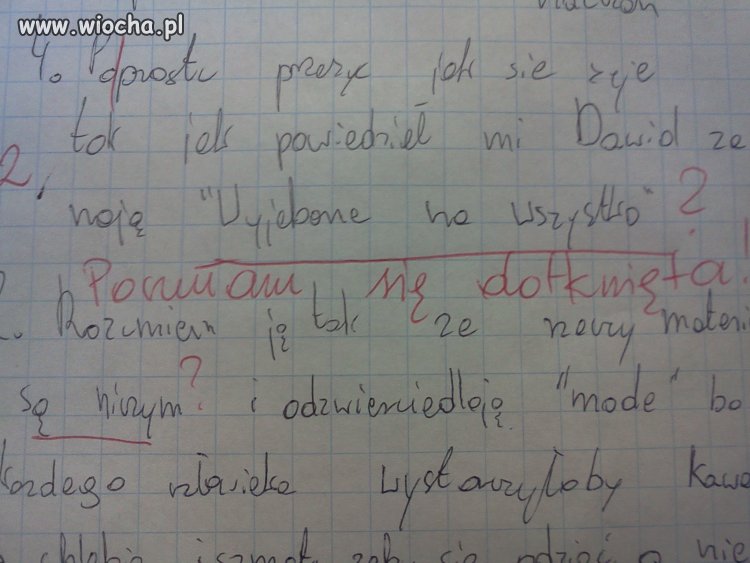 www.wiocha.pl
4. Poprostu przez jak sie żyje
tak jak powiedział mi Dawid ze
2,
mają "Wyjebane na wszystko" ?
Poczułam się dotknięta!
Rozumiem ją tak ze rzeczy materi
są niczym ? i odzwierciedlają "mode" bo
każdego człowieka wystarczyłoby kawa
chleba i szmat żeby się odziać a nie